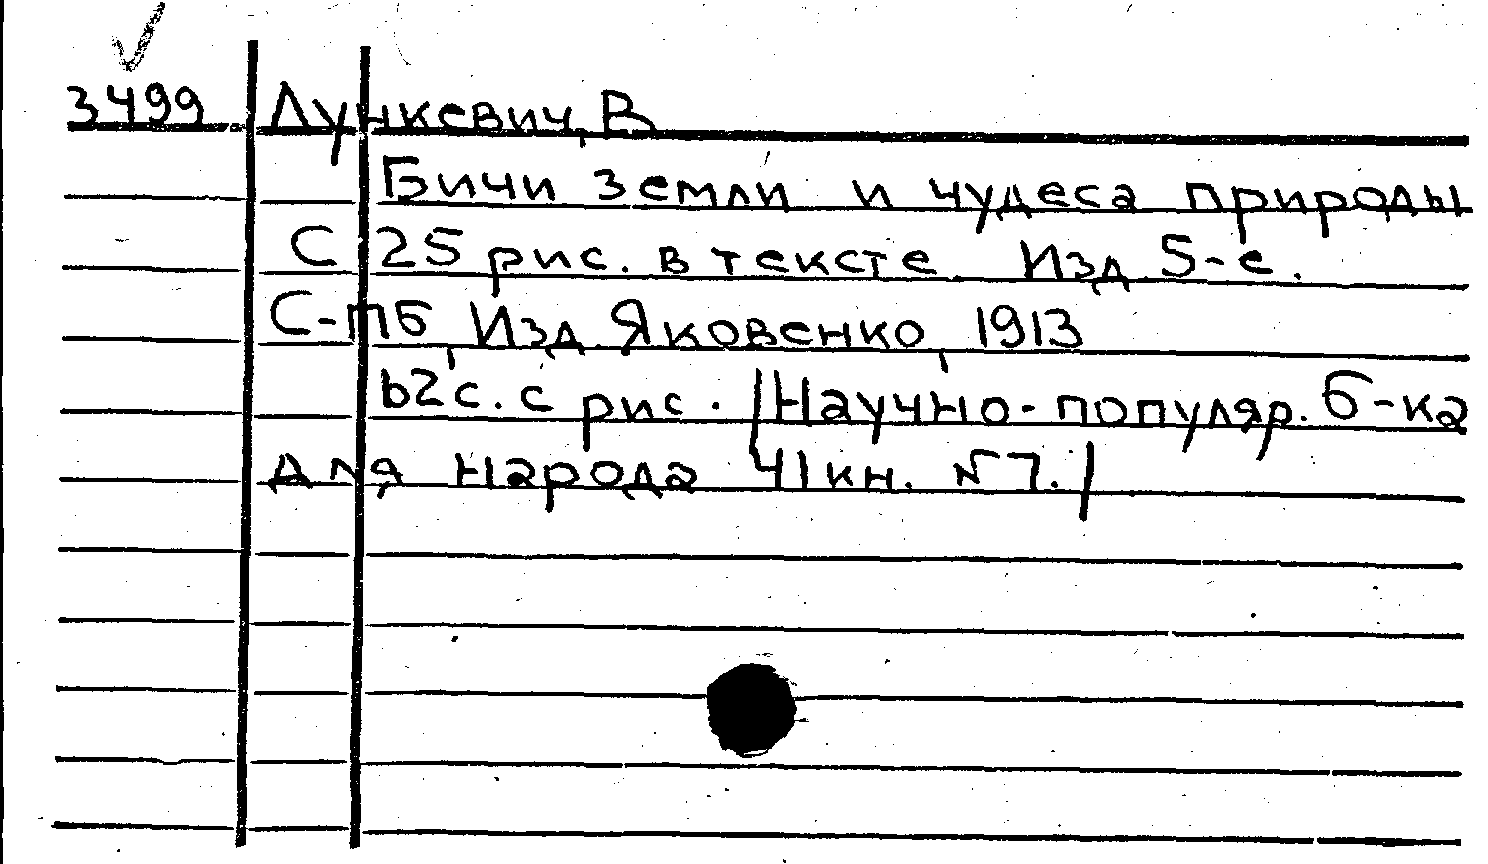 3499 Лункевич, В
Бичи земли и чудеса природы
С 25 рис. в тексте. Изд. 5-е.
С-пб, Изд. Яковенко, 1913
62 с. с рис. /Научно-популяр. б-ка
для народа 41 кн. №7./